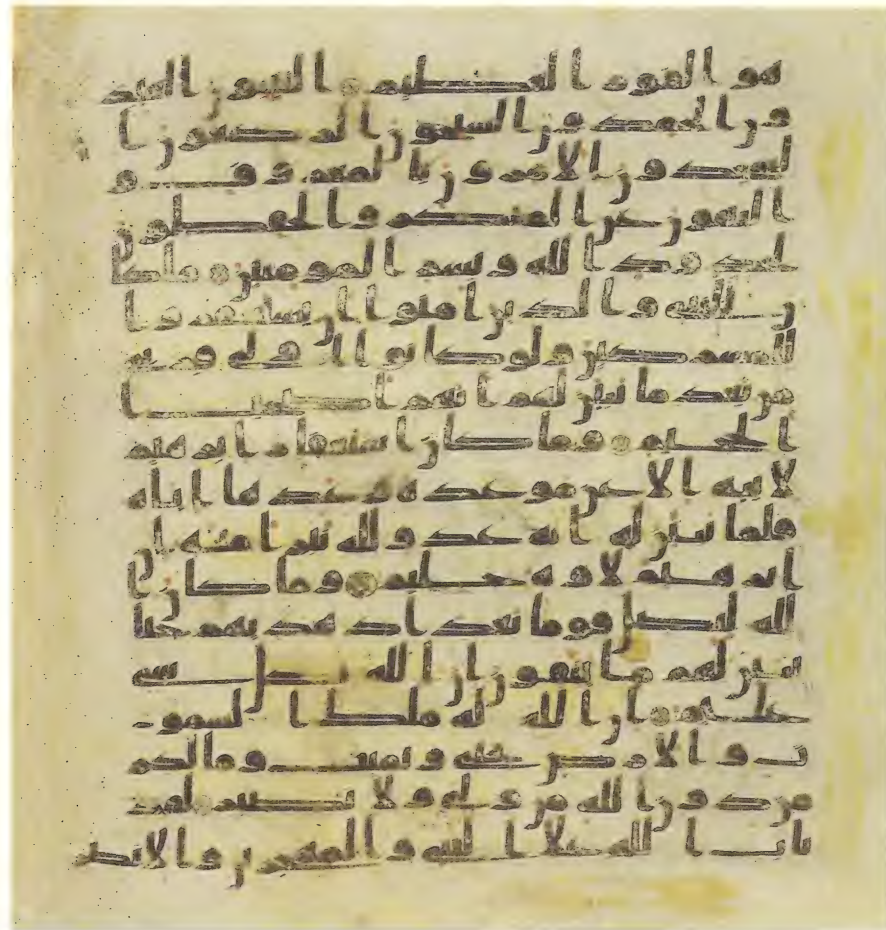 هو الفوز العظيم التيبون العبد
ون الحمدون السيحون الركعون ا
لسجدون الامرون بالمعروف و
الناهون عن المنكر والحفظون
لحدود الله وبشر المومنين ما كا
ن للنبي والذين امنوا ان يستغفروا
للمشركين ولو كانوا اولي قربى
من بعد ما تبين لهم انهم اصحب ا
لجحيم وما كان استغفار ابرهيم
لابيه الا عن موعدة وعدها اياه
فلما تبين له انه عدو لله تبرا منه ان
ابرهيم لاوه حليم وما كان ا
لله ليضل قوما بعد اذ هديهم حتى
يبين لهم ما يتقون ان الله بكل شي
عليم ان الله له ملك السمو
ت والارض يحيي ويميت وما لكم
من دون الله من ولي ولا نصير لقد
تاب الله على النبي والمهجرين والانصر